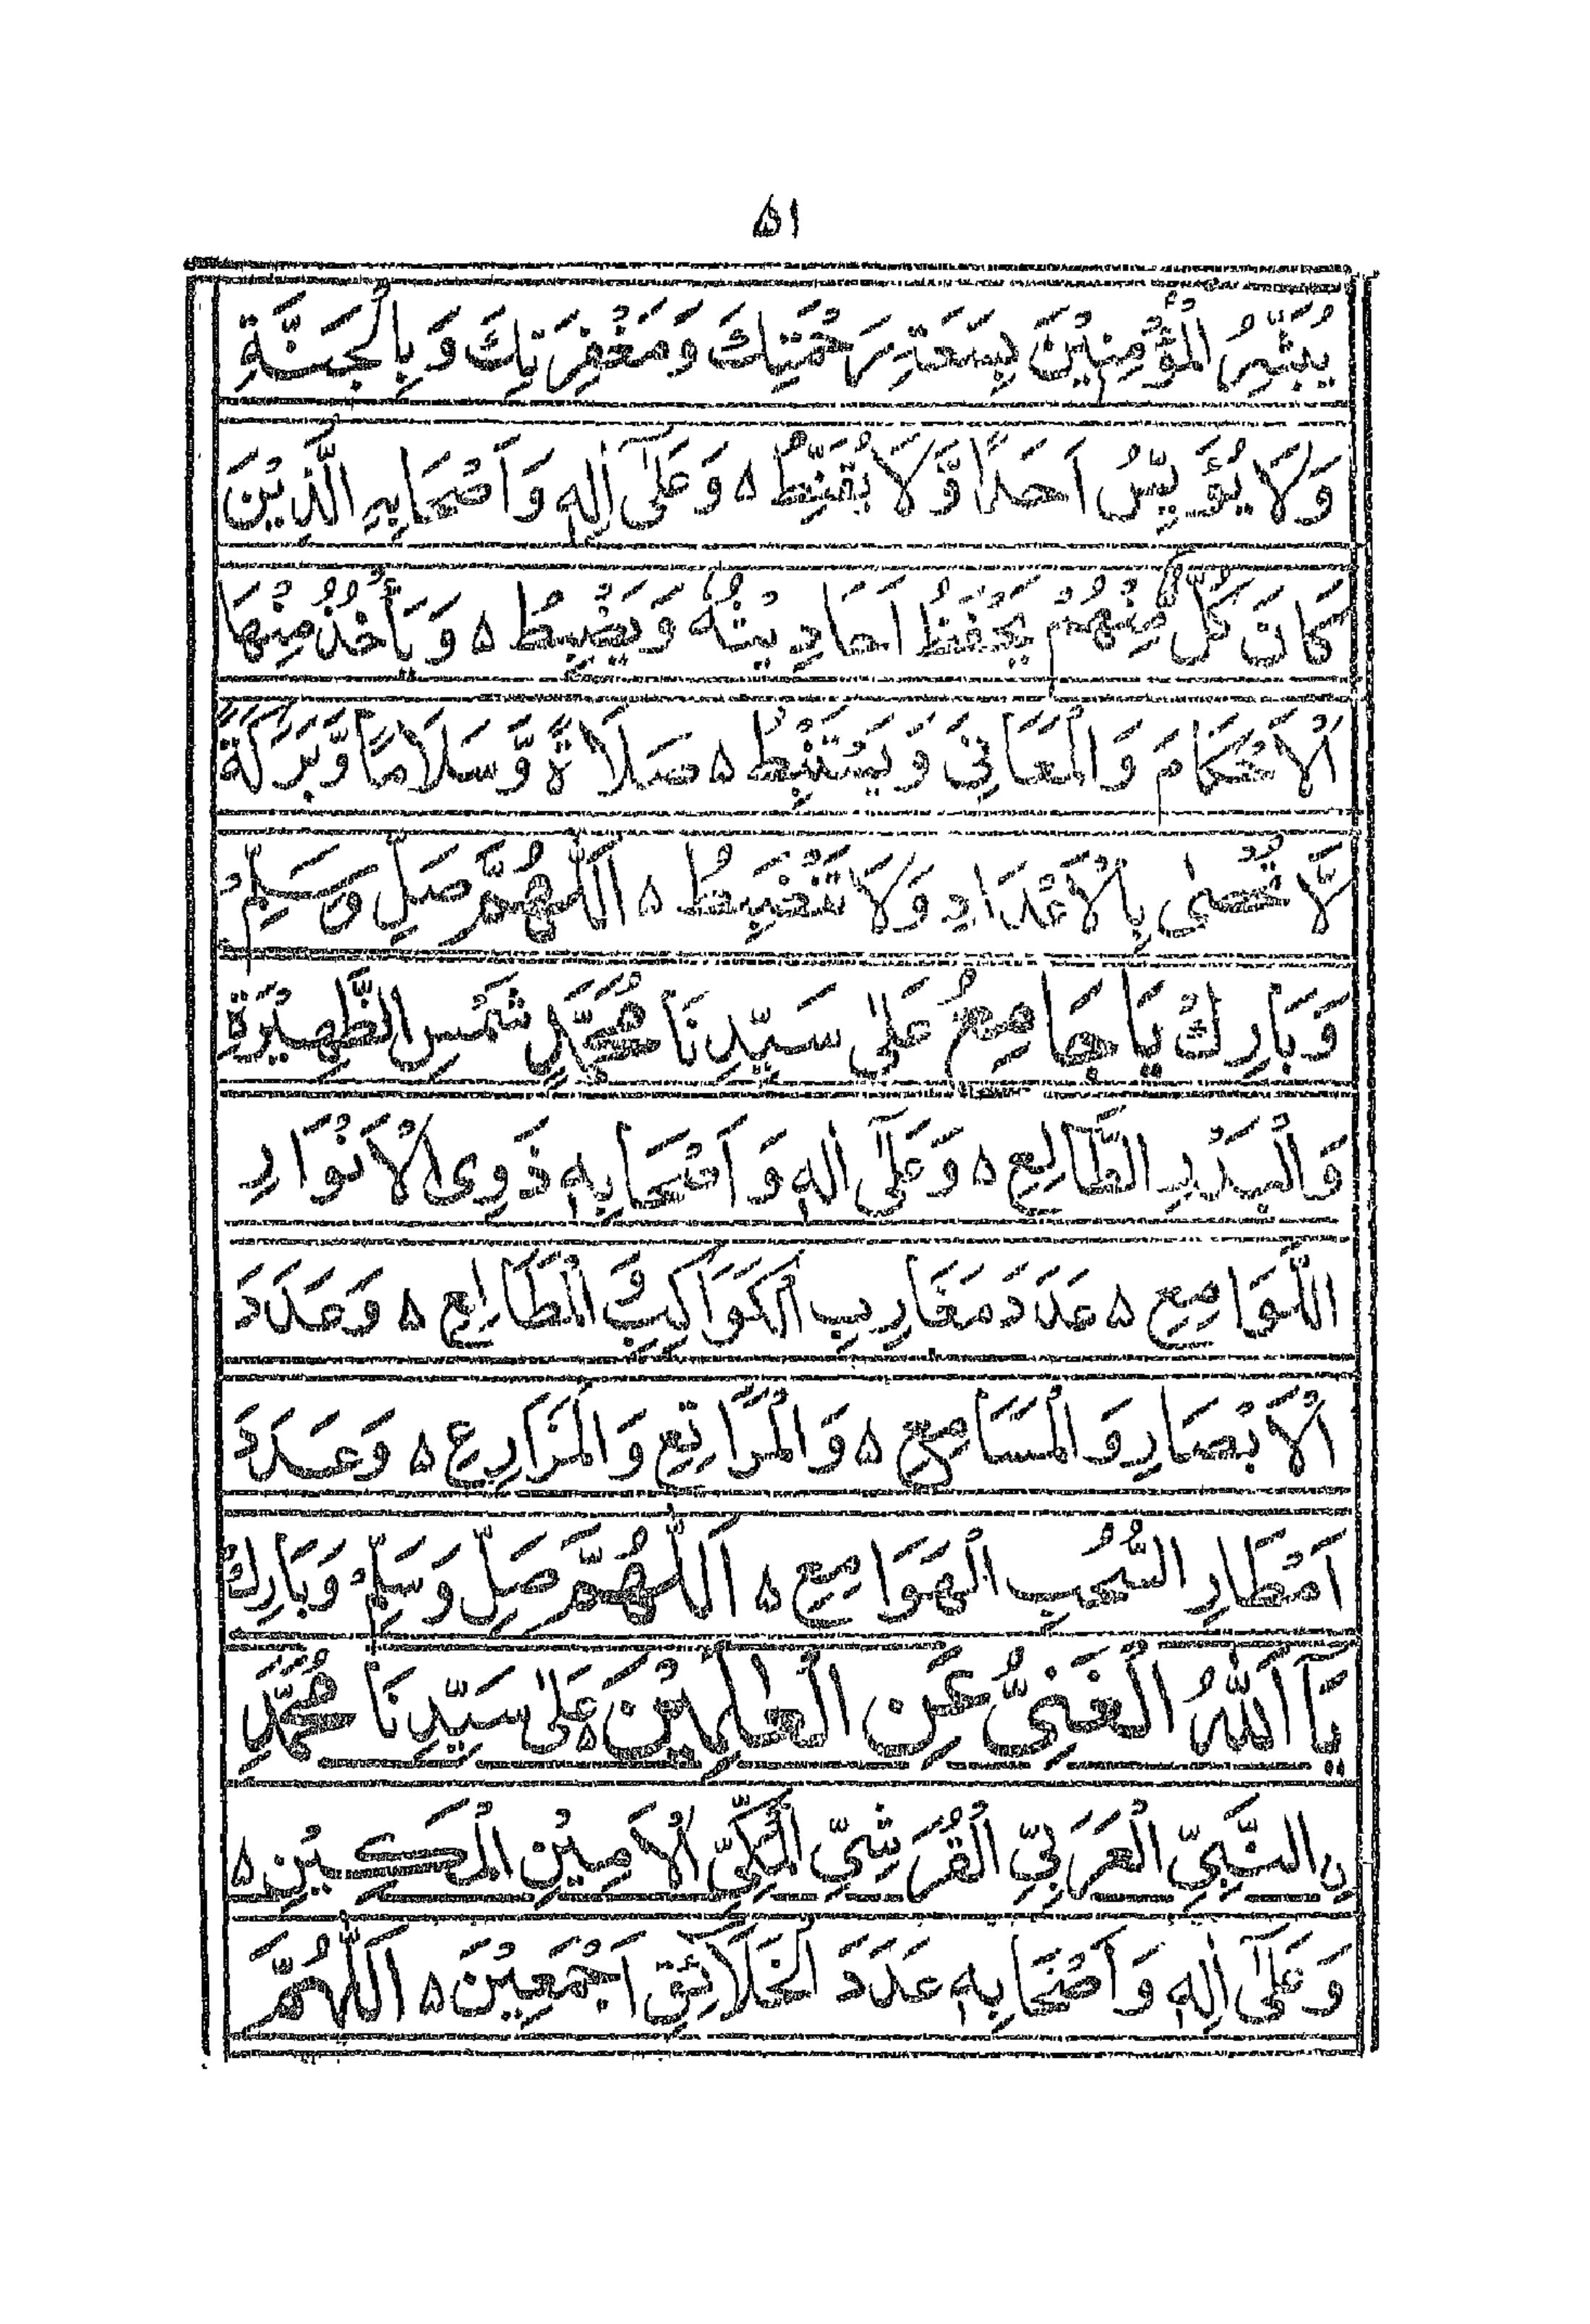 ۵۱
يُبَشِّرُ الْمُؤْمِنِيْنَ بِسَعَةِ رَحْمَتِكَ وَمَغْفِرَتِكَ وَبِالْجَنَّةِ
وَلَا يُؤَيِّسُ اَحَدًا وَّلَا يُقَنِّطُ ۵ وَعَلٰٓى اٰلِهٖ وَاَصْحَابِهِ الَّذِيْنَ
كَانَ كُلٌّ مِّنْهُمْ يَحْفَظُ اَحَادِيْثَهٗ وَيَضْبِطُ ۵ وَيَأْخُذُ مِنْهَا
الْاَحْكَامَ وَالْمَعَانِيَ وَيَسْتَنْبِطُ ۵ صَلَاةً وَّسَلَامًا وَّبَرَكَةً
لَّا تُحْصٰى بِالْاَعْدَادِ وَلَا تَنْضَبِطُ ۵ اَللّٰهُمَّ صَلِّ وَسَلِّمْ
وَبَارِكْ يَا جَامِعُ عَلٰى سَيِّدِنَا مُحَمَّدٍ شَمْسِ الظَّهِيْرَةِ
وَالْبَدْرِ الطَّالِعِ ۵ وَعَلٰٓى اٰلِهٖ وَاَصْحَابِهٖ ذَوِى الْاَنْوَارِ
اللَّوَامِعِ ۵ عَدَدَ مَغَارِبِ الْكَوَاكِبِ وَالْمَطَالِعِ ۵ وَعَدَدَ
الْاَبْصَارِ وَالْمَسَامِعِ ۵ وَالْمَرَاتِعِ وَالْمَزَارِعِ ۵ وَعَدَدَ
اَمْطَارِ السُّحُبِ الْهَوَامِعِ ۵ اَللّٰهُمَّ صَلِّ وَسَلِّمْ وَبَارِكْ
يَآ اَللّٰهُ الْغَنِيُّ عَنِ الْعٰلَمِيْنَ عَلٰى سَيِّدِنَا مُحَمَّدِ
نِ النَّبِيِّ الْعَرَبِيِّ الْقُرَشِيِّ الْمَكِّيِّ الْاَمِيْنِ الْمَكِيْنِ ۵
وَعَلٰٓى اٰلِهٖ وَاَصْحَابِهٖ عَدَدَ الْخَلَآئِقِ اَجْمَعِيْنَ ۵ اَللّٰهُمَّ